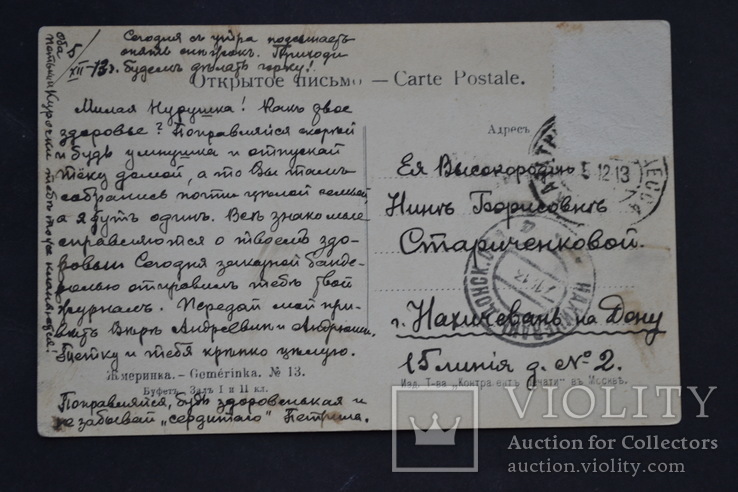 5/XII-13г.
Сегодня съ утра подсыпаетъ
опять снѣжокъ. Приходи
будемъ дѣлать горку!
Открытое письмо — Carte Postale.
Милая Нурушка! Какъ твое
здоровье? Поправляйся скорѣй
и будь умнушка и отпускай
тёку домой, а то Вы тамъ
собрались почти цѣлой семьей,
а я тутъ одинъ. Всѣ знакомые
справляются о твоемъ здо-
ровьи. Сегодня заказной банде-
ролью отправилъ тебѣ твой
журналъ. Передай мой при-
вѣтъ Вѣрѣ Андреевнѣ и Андрюшѣ.
тётку и тебя крѣпко цѣлую.
Жмеринка. - Gemérinka. № 13.
Буфетъ - Залъ I и II кл.
Поправляйся, будь здоровенькая и
не забывай „сердитаго" Петрима.
Оба
Курочки тебѣ тоже кланяются!
Адресъ
Ея Высокородію
Нинѣ Борисовнѣ
Стариченковой.
г. Нахичевань на Дону
15 линія д. № 2.
Изд. Т-ва „Контрагентъ печати" въ Москвѣ.
5.12.13
ОДЕССА
НАХИЧЕВАНЬ ДОНСК.
VIOLITY
Auction for Collectors
auction.violity.com